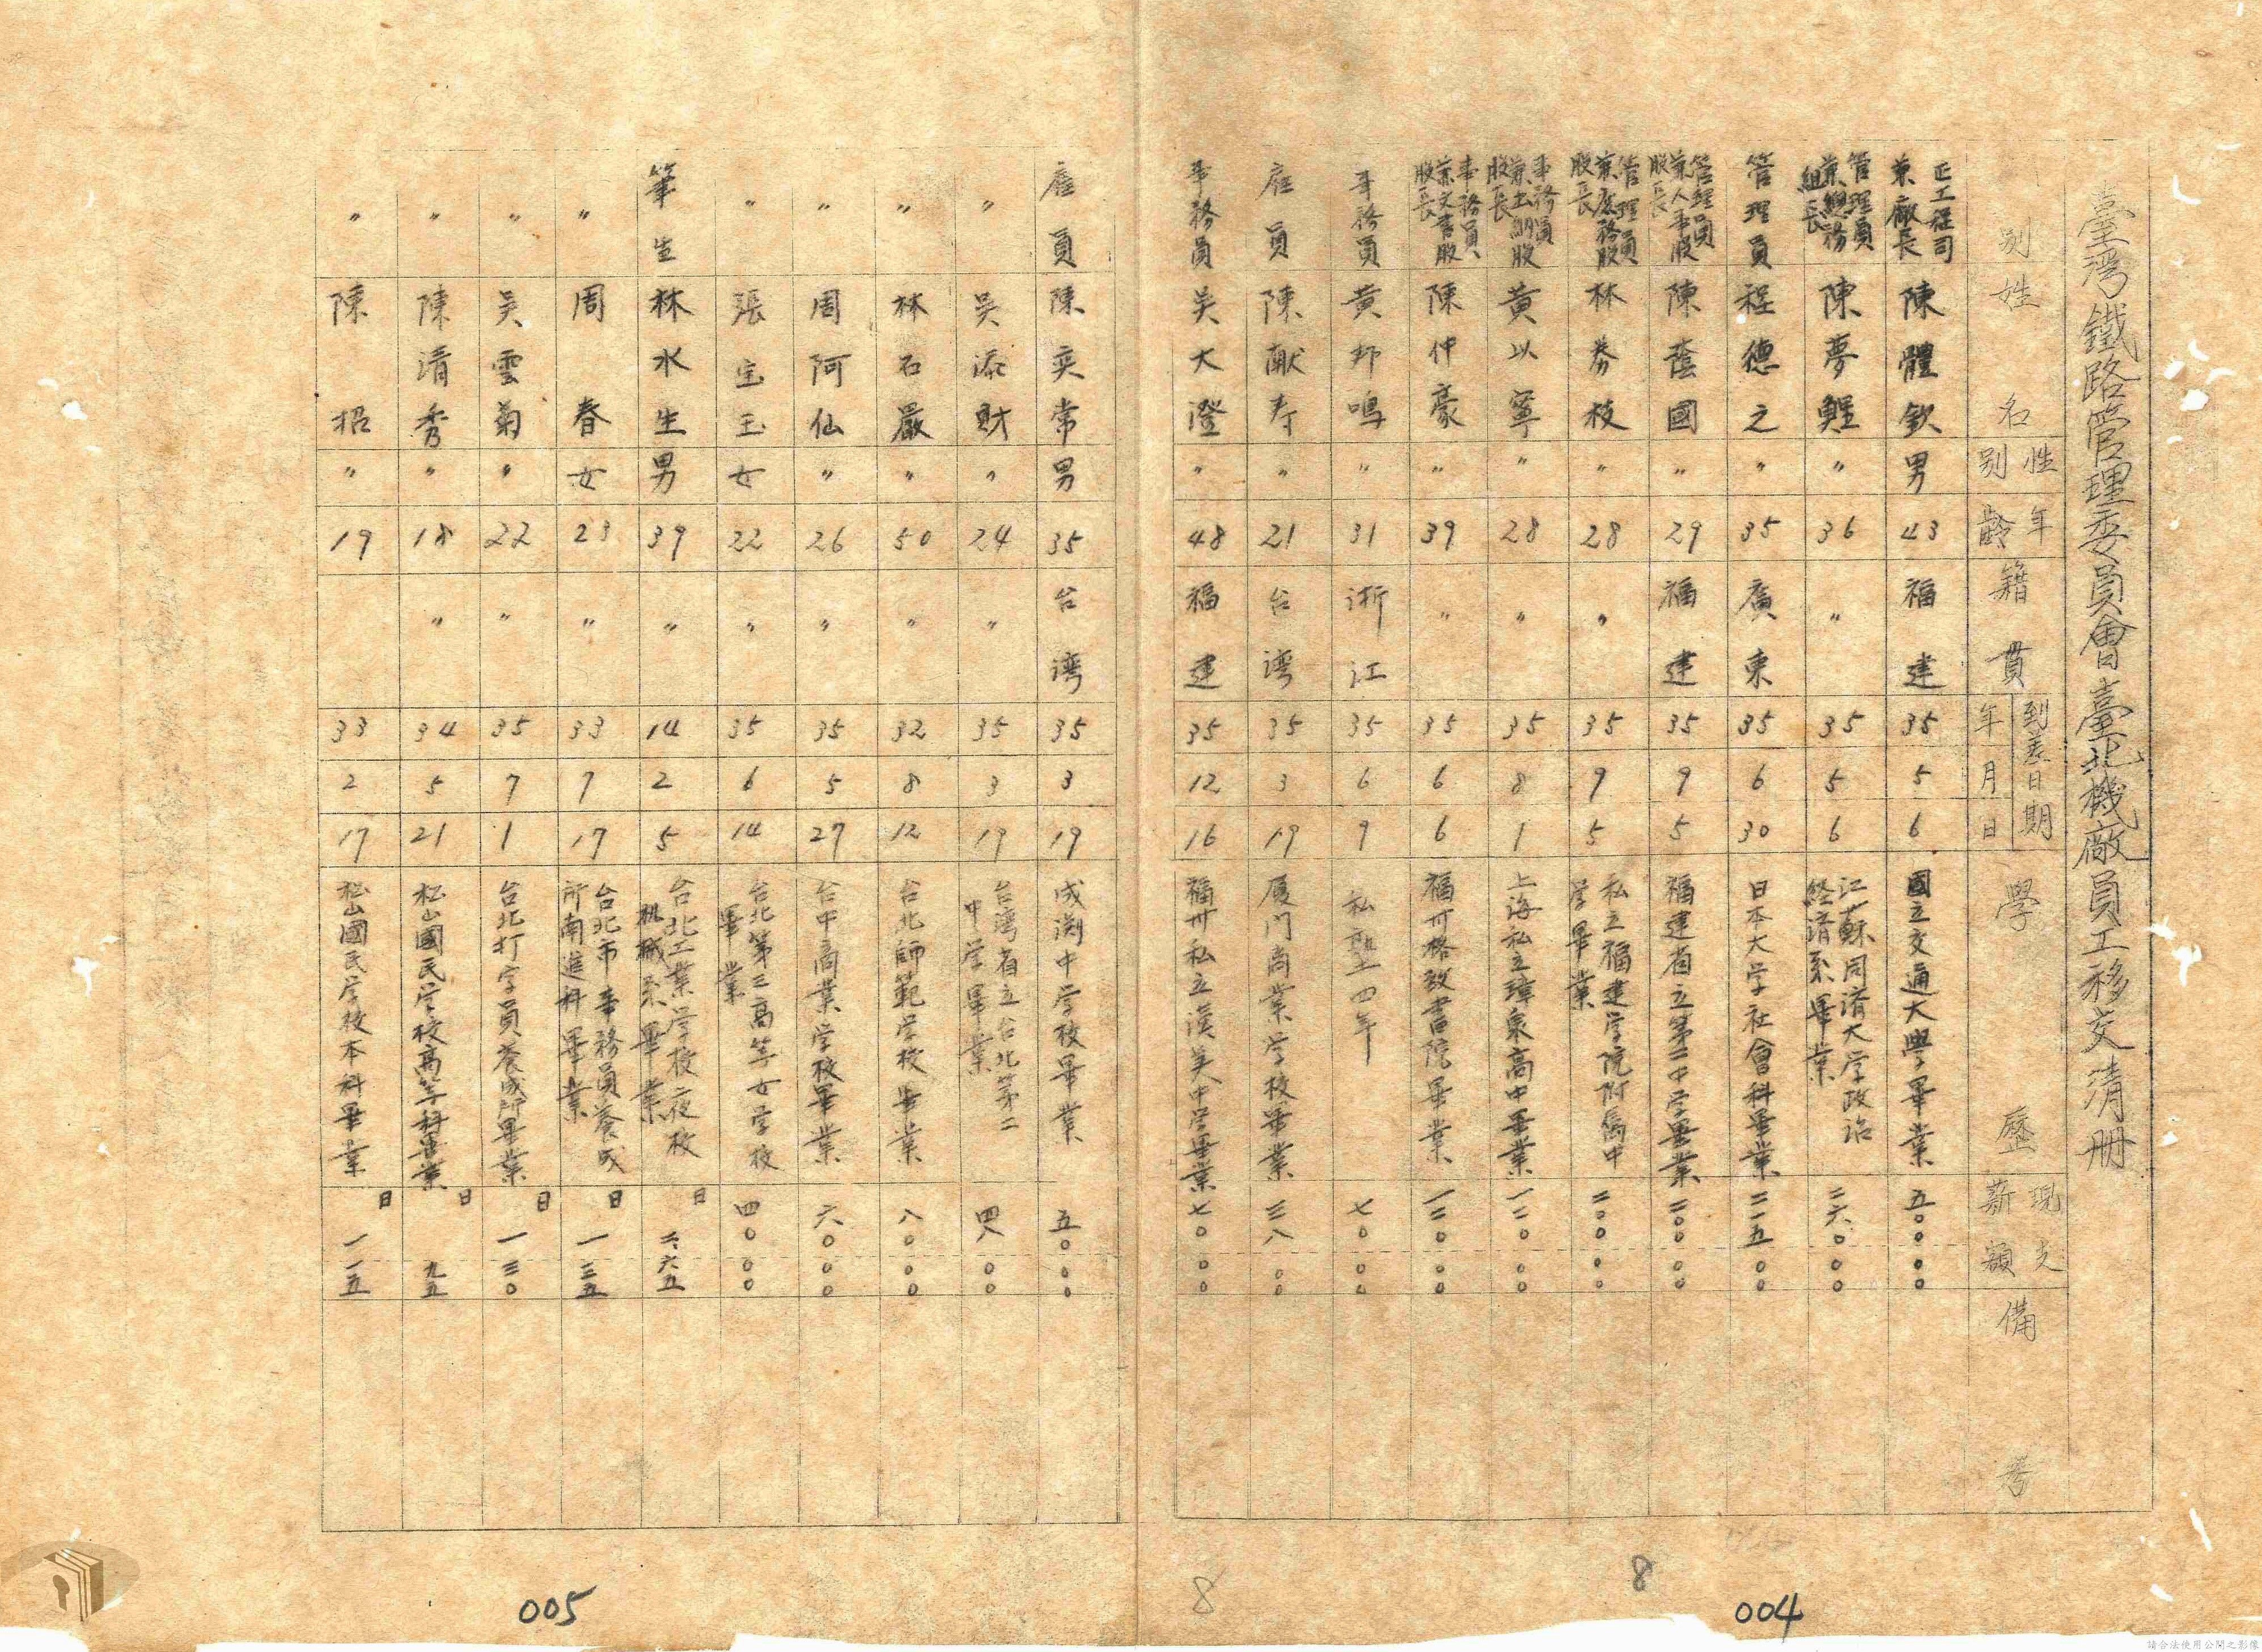 臺灣鐵路管理委員會臺北機廠員工移交清冊
別 姓名 性別 年齡 籍貫 到差日期 年 月 日 學歷 現支薪額 備考
正工程司兼廠長 陳體欽 男 43 福建 35 5 6 國立交通大學畢業 五〇〇 〇〇
管理員兼總務組長 陳夢鯉 〃 36 〃 35 5 6 江蘇同濟大学政治経済系畢業 二六〇 〇〇
管理員 程德之 〃 35 廣東 35 6 30 日本大学社會科畢業 二一五 〇〇
管理員兼人事股股長 陳蔭國 〃 29 福建 35 9 5 福建省立第二中学畢業 二〇〇 〇〇
管理員兼庶務股股長 林芬枝 〃 28 〃 35 9 5 私立福建学院附屬中学畢業 二〇〇 〇〇
事務員兼出納股股長 黃以寧 〃 28 〃 35 8 1 上海私立璋泉高中畢業 一二〇 〇〇
事務員兼文書股股長 陳仲豪 〃 39 〃 35 6 6 福州格致書院畢業 一三〇 〇〇
事務員 黃邦鳴 〃 31 浙江 35 6 9 私聖四年 七〇 〇〇
雇員 陳献寿 〃 21 台湾 35 3 19 厦门商業学校畢業 三八 〇〇
事務員 吴大澄 〃 48 福建 35 12 16 福州私立漢美中学畢業 七〇 〇〇
雇員 陳奕常 男 35 台湾 35 3 19 成渊中学校畢業 五〇 〇〇
〃 吴添財 〃 24 〃 35 3 19 台湾省立台北第二中学畢業 四八 〇〇
〃 林石嚴 〃 50 〃 32 8 12 台北師範学校畢業 八〇 〇〇
〃 周阿仙 〃 26 〃 35 5 27 台中商業学校畢業 六〇 〇〇
〃 張宝玉 女 22 〃 35 6 14 台北第三高等女学校畢業 四〇 〇〇
筆生 林水生 男 39 〃 14 2 5 台北工業学校夜校机械系畢業 日 二六五
〃 周春 女 23 〃 33 7 17 台北市事務員養成所南進科畢業 日 一三五
〃 吴雲菊 〃 22 〃 35 7 1 台北打字員養成所畢業 日 一三〇
〃 陳清秀 〃 18 〃 34 5 21 松山國民学校高等科畢業 日 九五
〃 陳招 〃 19 33 2 17 松山國民学校本科畢業 日 一一五
8
8
004
005
請合法使用公開之影像